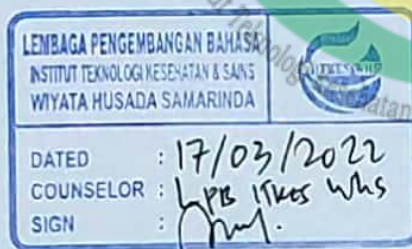 LEMBAGA PENGEMBANGAN BAHASA
INSTITUT TEKNOLOGI KESEHATAN & SAINS
WIYATA HUSADA SAMARINDA
ITKES WHS
DATED : 17/03/2022
COUNSELOR : LPB ITKES WHS
SIGN :